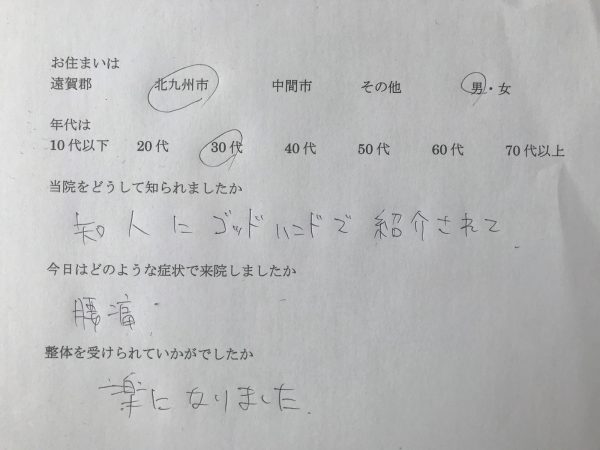 お住まいは
遠賀郡 北九州市 中間市 その他 男・女
年代は
10代以下 20代 30代 40代 50代 60代 70代以上
当院をどうして知られましたか
知人にゴッドハンドで紹介されて.
今日はどのような症状で来院しましたか
腰痛.
整体を受けられていかがでしたか
楽になりました.